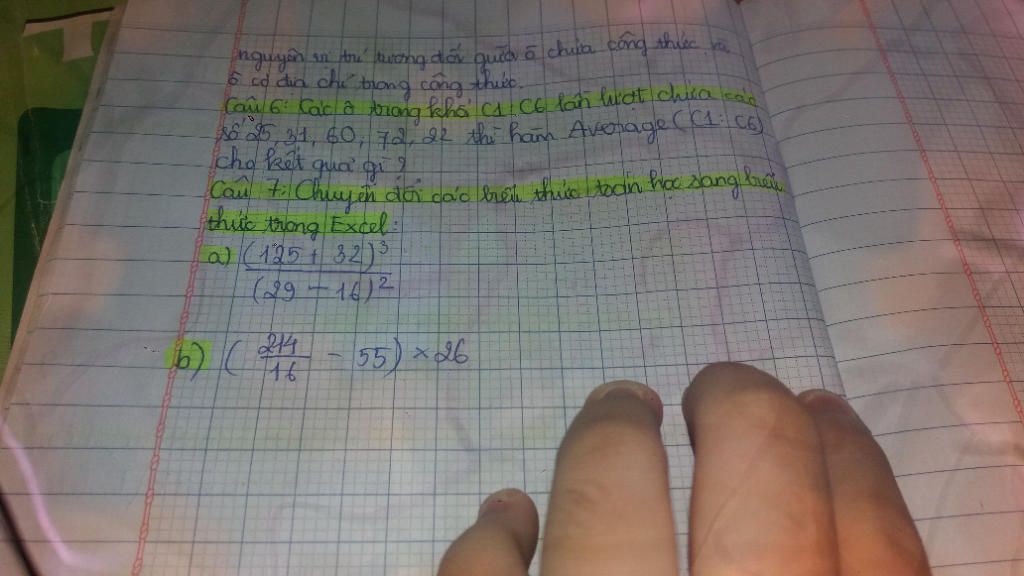 nguyên vị trí tương đối giữa ô chứa công thức và
ô có địa chỉ trong công thức.
Câu 6: Các ô trong khối C1:C6 lần lượt chứa các
số 25, 31, 60, 72, 22 thì hàm Average (C1:C6)
cho kết quả gì?
Câu 7: Chuyển đổi các biểu thức toán học sang biểu
thức trong Excel:
a) (125 + 32)³
(29 - 16)²
b) (214/16 - 55) × 26